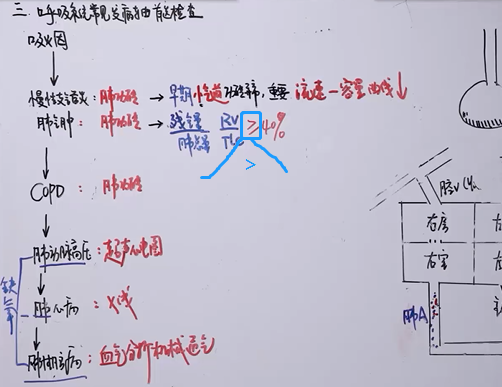 三、呼吸系统常见发病的首选检查
吸烟
慢性支气管炎：肺功能 → 早期小气道功能障碍，重要 流速—容量曲线↓
肺气肿：肺功能 → 残气量/肺总量 RV/TLC ≥40%
>
COPD：肺功能
肺动脉高压：超声心电图
肺心病：X线
肺脑病：血气分析→机械通气
缺氧
右房
右室
肺A